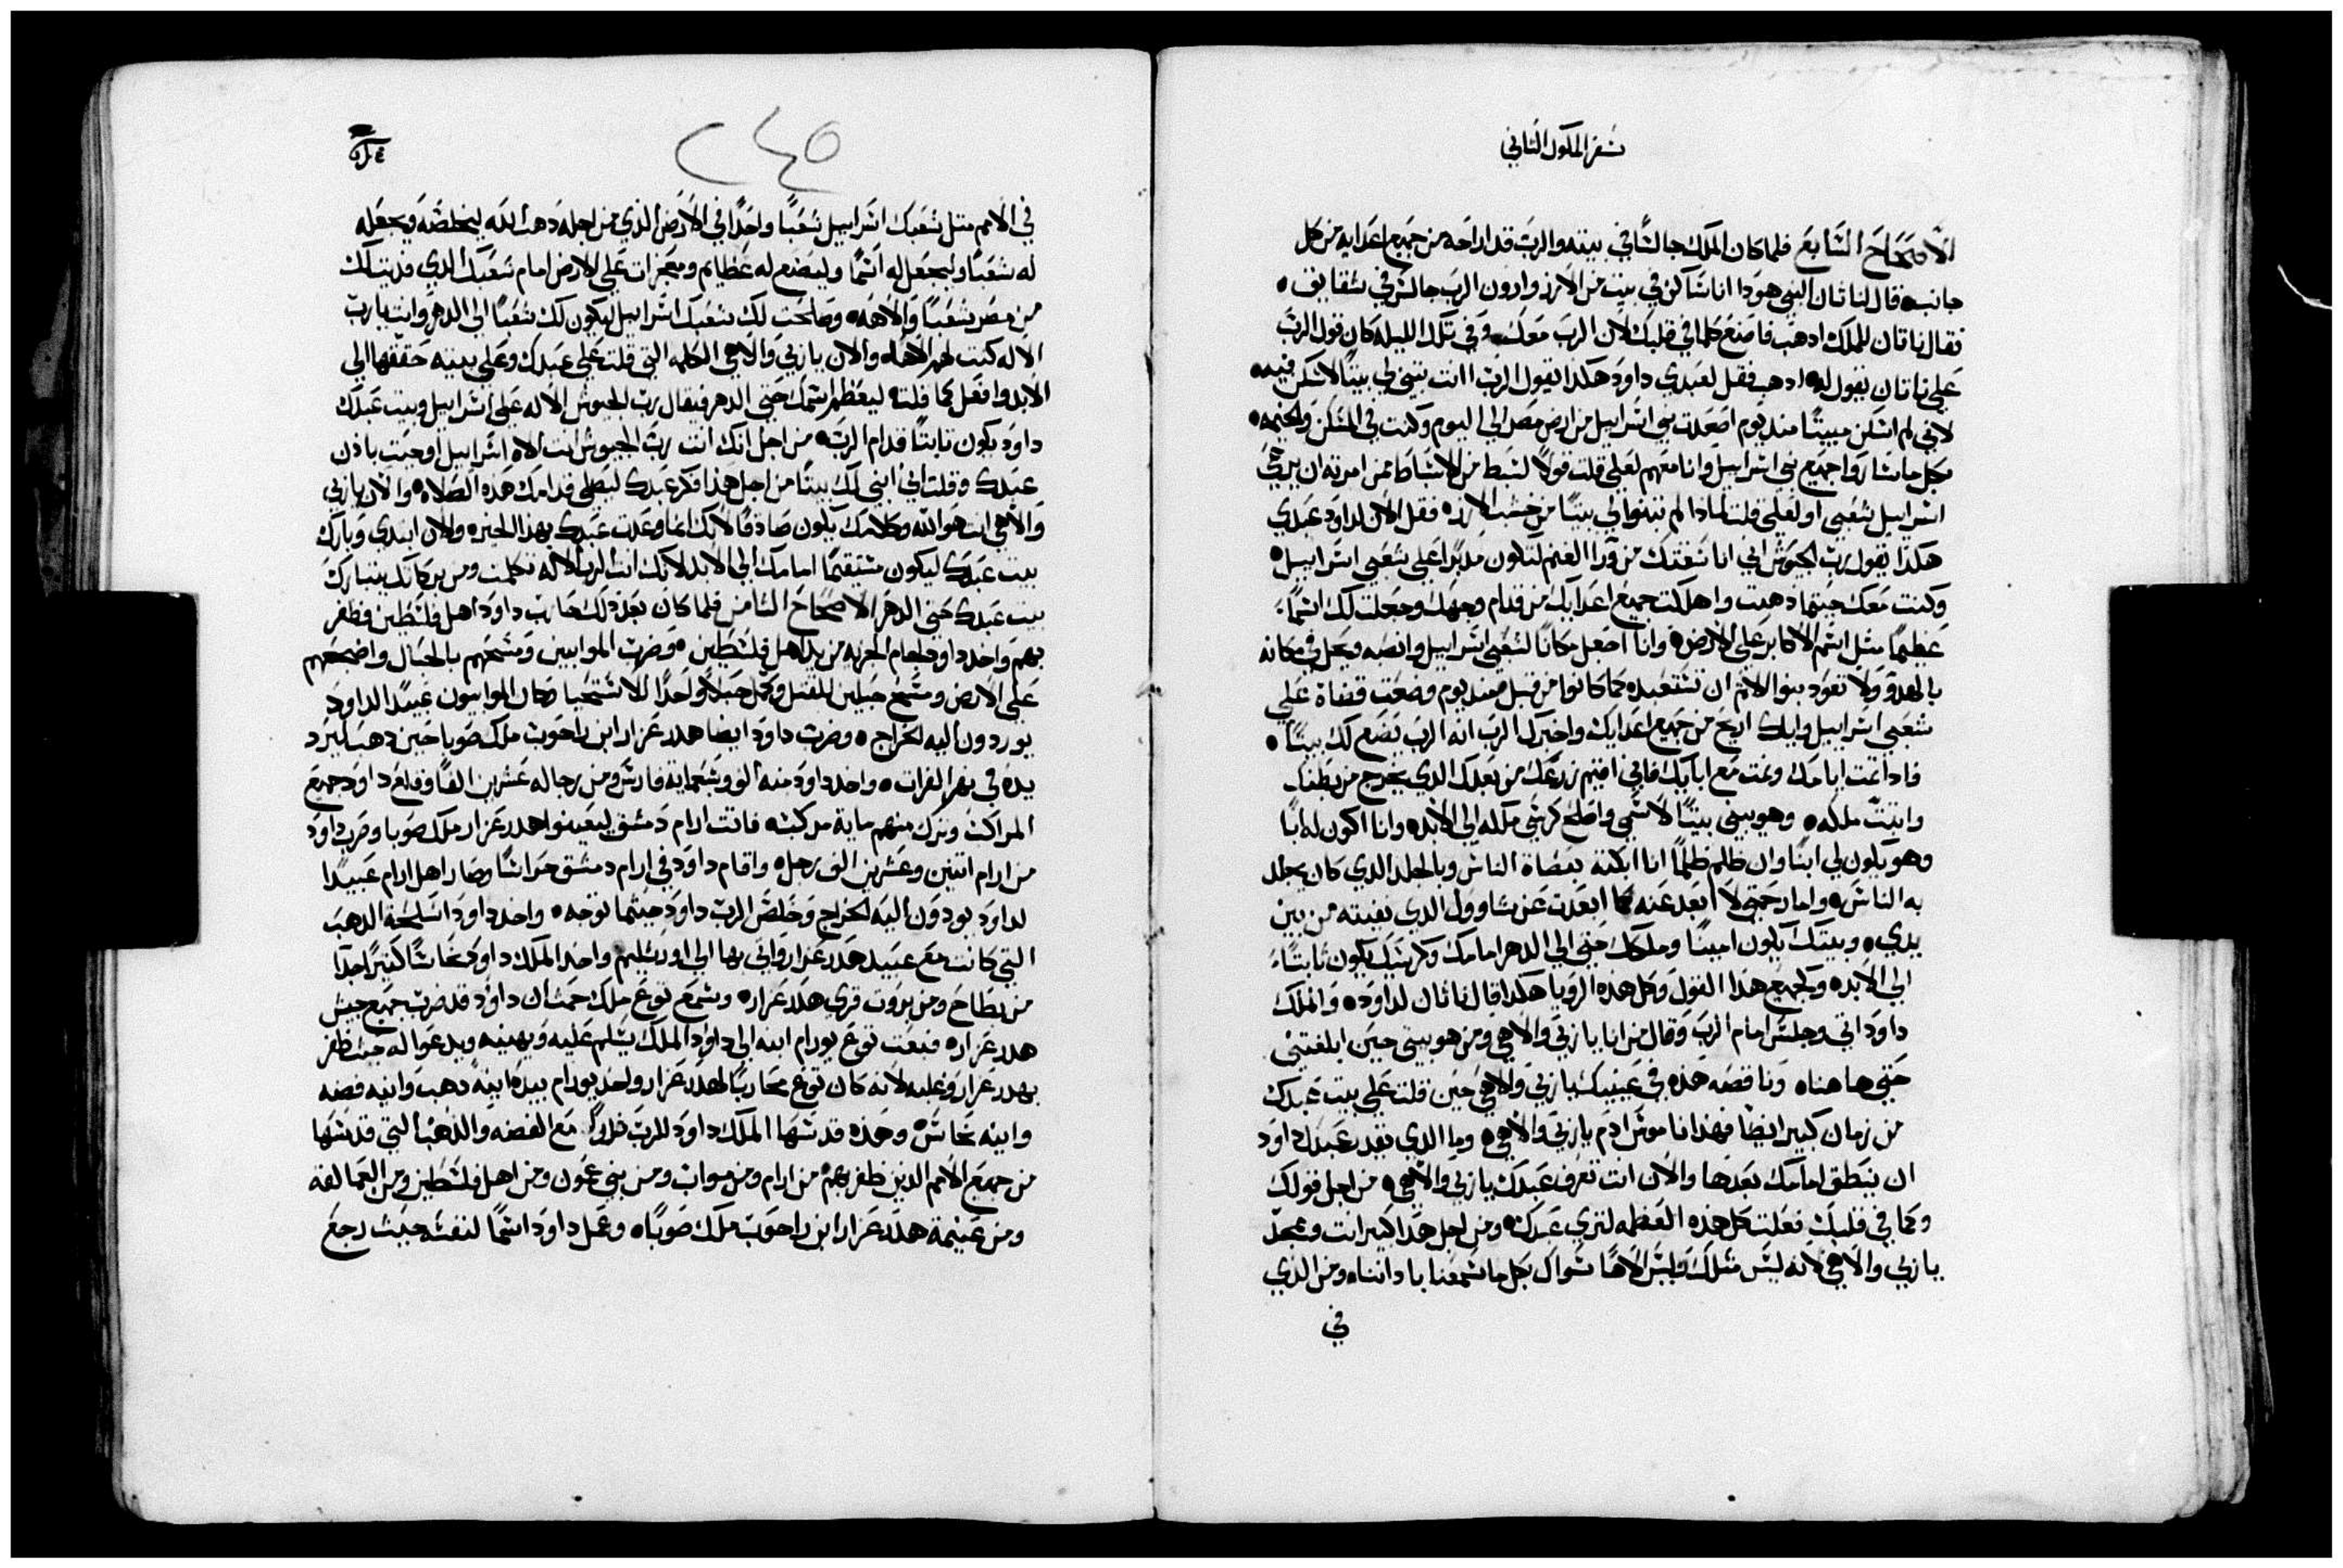 سفر الملوك الثاني
الاصحاح السابع فلما كان الملك جالسًا في بيته والرب قد اراحه من جميع اعدايه من كل
جانب قال لناثان النبي هودا انا ساكن في بيت من الارز وارون الرب جالس في شقايف
فقال ناتان للملك ادهب فاصنع كلما في قلبك لان الرب معك وفي تلك الليله كان قول الرب
علي ناتان بقوله ادهب فقل لعبدي داود هكدا يقول الرب اانت تبني لي بيتًا لاسكن فيه
لاني لم اسكن مبيتًا مند يوم اصعدت بني اسراييل من ارض مصر الي اليوم وكنت في المسكن والخيمه
بكل ما سار وا جميع بني اسراييل وانا معهم لعلي قلت قولاً لسبط من الاسباط ممن امرته ان يرعي
اسراييل شعبي او لعلي قلت لمادا لم تبنوا لي بيتًا من خشب الارز فقل الان لداود عبدي
هكدا يقول رب الجيوش اني انا سقتك من ورا الغنم لتكون مدبرًا علي شعبي اسراييل
وكنت معك حيتما دهبت واهلكت جميع اعدايك من قدام وجهك وجعلت لك اسمًا
عظيمًا متل اسم الاكابر علي الارض وانا اجعل مكانًا لشعبي اسراييل وانصبه ويحل في مكانه
بالهدو ولا تعود بنوا الاتم ان تستعبده كما كانوا من قبل مند يوم وضعت قضاة علي
شعبي اسراييل واياك اريح من جميع اعدايك واخبرك الرب انه الرب يصنع لك بيتًا
فادا تمت ايامك ونمت مع ابايك فاني اقيم زرعك من بعدك الدي يخرج من بطنك
واتبت ملكه وهو يبني بيتًا لاسمي واصلح كرسي ملكه الي الابد وانا اكون له ابًا
وهو يكون لي ابنًا وان ظلم ظلمًا انا ابكته بعصاة الناس وبالجلد الدي كان يجلد
به الناس واما رحمتي لا ابعد عنه كما ابعدت عن شاوول الدي نفيته من بين
يدي وبيتك يكون امينًا وملكك حتي الي الدهر امامك وكرسيك يكون تابتًا
الي الابد وكجميع هدا القول وكل هده الرويا هكدا قال ناتان لداود والملك
داود اتي وجلس امام الرب وقال من انا يا ربي والاهي ومن هو بيتي حين ابلغتني
حتي ها هنا وناقصه هده في عينيك يا ربي والاهي حين قلت علي بيت عبدك
من زمان كبير ايضًا فهدا ناموس ادم يا ربي والاهي وما الدي يقدر عبدك داود
ان ينطق امامك بعدها والان انت تعرف عبدك يا ربي والاهي من اجل قولك
وكما في قلبك فعلت كل هده العظمه لتري عبدك ومن اجل هدا كبير انت وممجد
يا ربي والاهي لانه ليس متلك وليس الاهًا سواك بكل ما سمعنا بادانناه ومن الدي
في
٢٤٥
في الامم متل شعبك اسراييل شعبًا واحدًا في الارض الدي من اجله دهب الله ليخلصه ويجعله
له شعبًا وليجعل له اسمًا وليصنع له عظايم ومعجزات علي الارض امام شعبك الدي فديته لك
من مصر شعبًا والاهه وصلحت لك شعبك اسراييل ليكون لك شعبًا الي الدهر وانت يا رب
الاله كنت لهم الاهًا والان يا ربي والاهي الكلمه التي قلت علي عبدك وعلي بيته حققها الي
الابد وافعل كما قلت ليعظم اسمك حتي الدهر فيقال رب الجيوش الاله علي اسراييل وبيت عبدك
داود يكون تابتًا قدام الرب من اجل انك انت رب الجيوش انت الاه اسراييل اوحيت بادن
عبدك وقلت اني ابني لك بيتًا من اجل هدا فكر عبدك ليصلي قدامك هده الصلاه والان يا ربي
والاهي انت هو الله وكلامك يكون صادقًا لانك انما وعدت عبدك بهدا الخير والان ابتدي وبارك
بيت عبدك ليكون مستقيمًا امامك الي الابد لانك انت الرب الاله تكلمت ومن بركاتك يتبارك
بيت عبدك حتي الدهر الاصحاح التامن فلما كان بعد دلك حارب داود اهل فلسطين وظفر
بهم واخد داود لجام الجزيه من يد اهل فلسطين وضرب الموابيين ومسحهم بالحبال واضجعهم
علي الارض ومسح حبلين للقتل وكمل حبلاً واحدًا للاستحيا وصار الموابيون عبيدًا لداود
يوردون اليه الخراج وضرب داود ايضا هدد عزار ابن راحوب ملك صوبا حين دهب ليرد
يده في نهر الفرات واخد داود منه الف وسبعماية فارس ومن رجاله عشرين الفًا وقلع داود جميع
المراكب وترك منهم ماية مركبه فاتت ارام دمشق ليعينوا هدد عزار ملك صوبا وضرب داود
من ارام اتنين وعشرين الف رجل واقام داود في ارام دمشق حراسًا وصار اهل ارام عبيدًا
لداود يودون اليه الخراج وخلص الرب داود حيتما توجه واخد داود اسلحة الدهب
التي كانت مع عبيد هدد عزار واتي بها الي اورشليم واخد الملك داود نحاسًا كتيرًا جدًا
من بطاح ومن بروت قري هدد عزار وسمع توع ملك حمت ان داود قد ضرب جميع جيش
هدد عزار فبعت توع يورام ابنه الي داود الملك يسلم عليه ويهنيه ويدعوا له حيت ظفر
بهدد عزار وغلبه لانه كان توع محاربًا لهدد عزار واخد يورام بيده انية دهب وانيه فضه
وانيه نحاس وهده قدسها الملك داود للرب مع الفضه والدهب التي قدسها
من جميع الامم الدين ظفر بهم من ارام ومن مواب ومن بني عمون ومن اهل فلسطين ومن العمالقه
ومن غنيمة هدد عزار ابن راحوب ملك صوبا وعمل داود اسمًا لنفسه حيت رجع